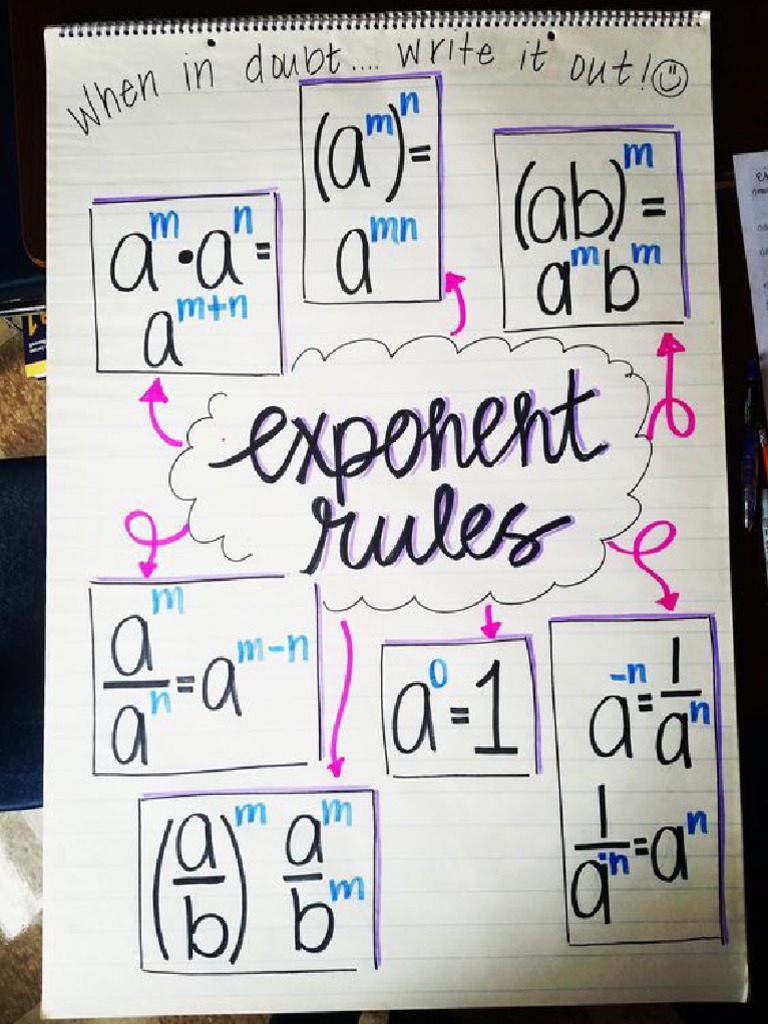 When in doubt.... write it out! ☺
(a^m)^n =
a^mn
(ab)^m =
a^m b^m
a^m • a^n =
a^m+n
exponent
rules
a^m/a^n = a^m-n
a^0 = 1
a^-n = 1/a^n
1/a^-n = a^n
(a/b)^m a^m/b^m